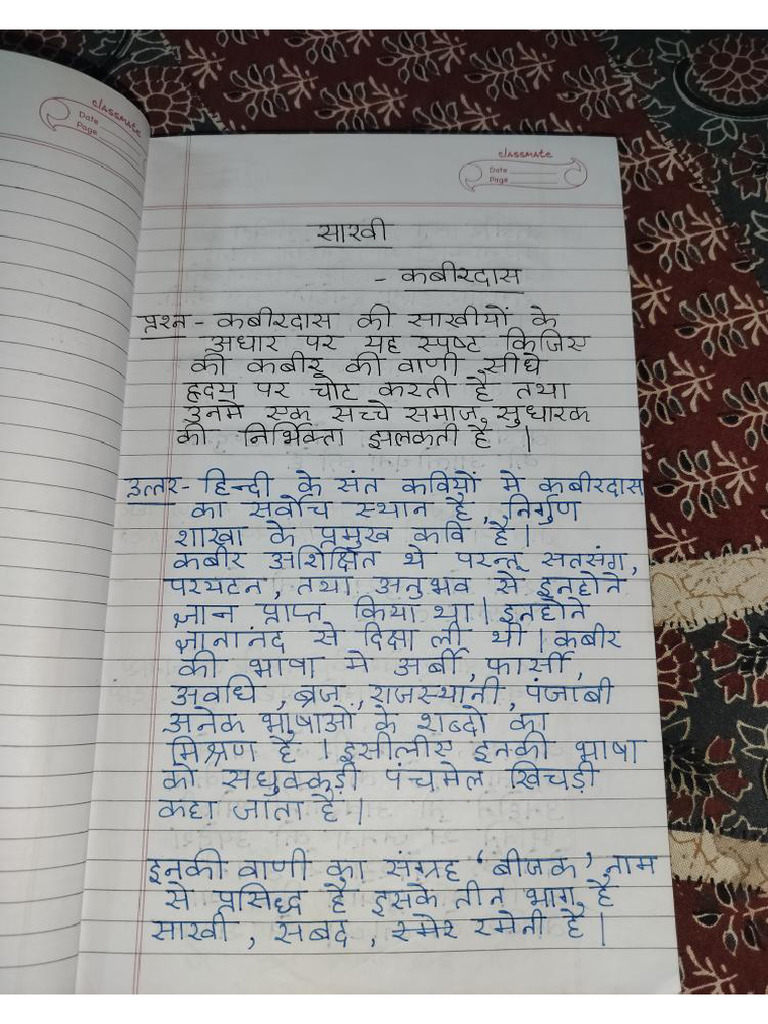 classmate
Date
Page
classmate
Date
Page
साखी
- कबीरदास
प्रश्न - कबीरदास की साखीयों के
अधार पर यह स्पष्ट किजिए
की कबीर की वाणी सीधे
ह्रदय पर चोट करती है तथा
उनमे एक सच्चे समाज सुधारक
की निर्भिक्ता झलकती है ।
उत्तर - हिन्दी के संत कवियों मे कबीरदास
का सर्वोच स्थान है, निर्गुण
शाखा के प्रमुख कवि है ।
कबीर अशिक्षित थे परन्तू सतसंग,
परयटन, तथा अनुभव से इनहोने
ज्ञान प्राप्त किया था । इनहोने
ज्ञानानंद से दिक्षा ली थी । कबीर
की भाषा मे अर्बी, फार्सी,
अवधि, ब्रज, राजस्थानी, पंजाबी
अनेक भाषाओं के शब्दो का
मिश्रण है । इसीलीए इनकी भाषा
को सधुक्कड़ी पंचमेल खिचड़ी
कहा जाता है ।
इनकी वाणी का संग्रह 'बीजक' नाम
से प्रसिद्ध है इसके तीन भाग है
साखी, सबद, स्मेर रमेनी है ।